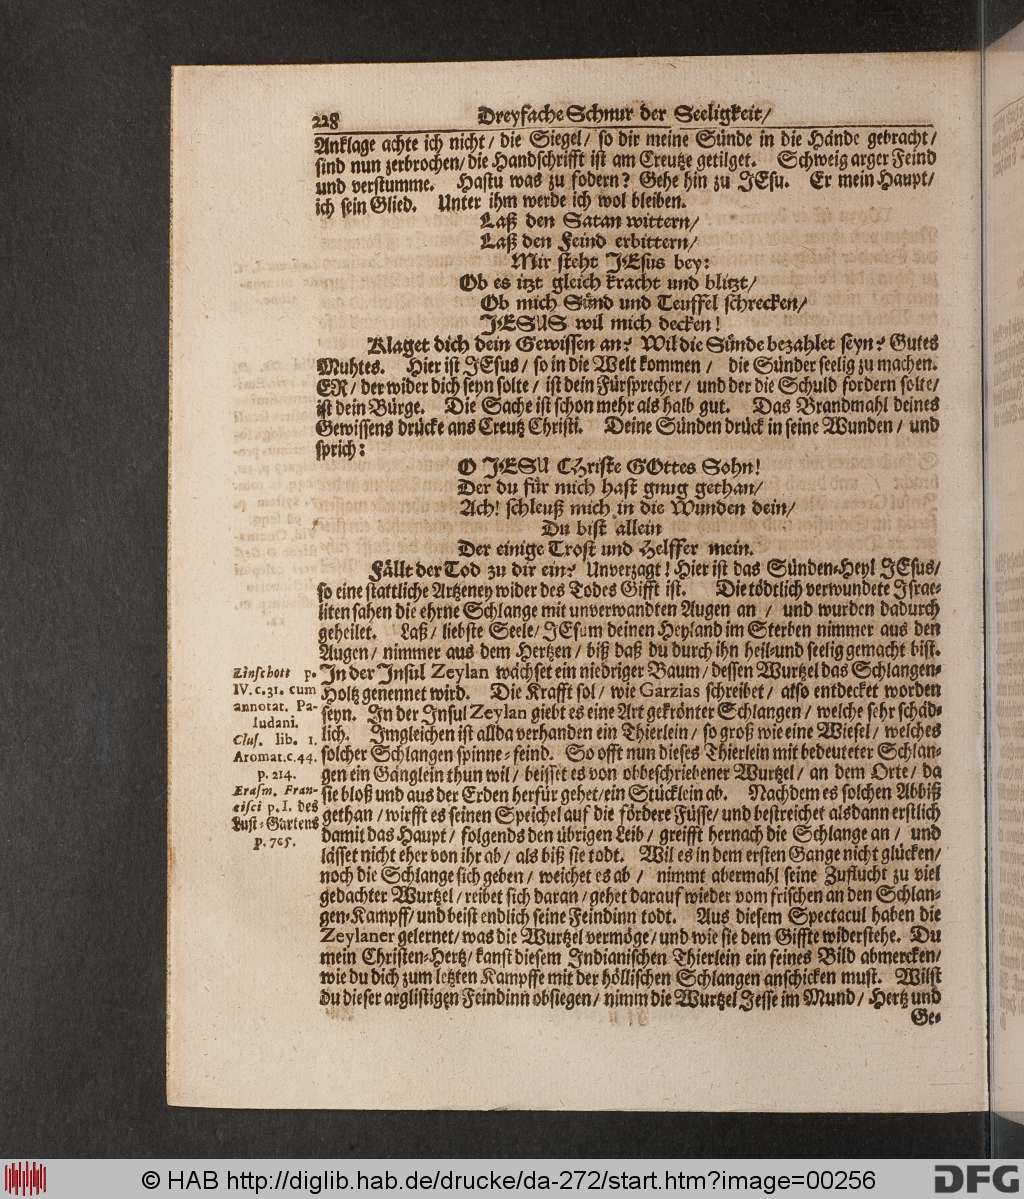 228
Dreyfache Schnur der Seeligkeit/
Anklage achte ich nicht/ die Siegel/ so dir meine Sünde in die Hände gebracht/
sind nun zerbrochen/ die Handschrifft ist am Creutze getilget. Schweig arger Feind
und verstumme. Hastu was zu fodern? Gehe hin zu JEsu. Er mein Haupt/
ich sein Glied. Unter ihm werde ich wol bleiben.
Laß den Satan wittern/
Laß den Feind erbittern/
Mir steht JEsus bey:
Ob es itzt gleich kracht und blitzt/
Ob mich Sünd und Teuffel schrecken/
JESUS wil mich decken!
Klaget dich dein Gewissen an? Wil die Sünde bezahlet seyn? Gutes
Muhtes. Hier ist JEsus/ so in die Welt kommen/ die Sünder seelig zu machen.
ER/ der wider dich seyn solte/ ist dein Fürsprecher/ und der die Schuld fordern solte/
ist dein Bürge. Die Sache ist schon mehr als halb gut. Das Brandmahl deines
Gewissens drücke ans Creutz Christi. Deine Sünden drück in seine Wunden/ und
sprich:
O JESU CHriste GOttes Sohn!
Der du für mich hast gnug gethan/
Ach! schleuß mich in die Wunden dein/
Du bist allein
Der einige Trost und Helffer mein.
Fällt der Tod zu dir ein? Unverzagt! Hier ist das Sünden-Heyl JEsus/
so eine stattliche Artzeney wider des Todes Gifft ist. Die tödtlich verwundete Israe-
liten sahen die ehrne Schlange mit unverwandten Augen an/ und wurden dadurch
geheilet. Laß/ liebste Seele/ JEsum deinen Heyland im Sterben nimmer aus den
Augen/ nimmer aus dem Hertzen/ biß daß du durch ihn heil-und seelig gemacht bist.
In der Insul Zeylan wächset ein niedriger Baum/ dessen Wurtzel das Schlangen-
Holtz genennet wird. Die Krafft sol/ wie Garzias schreibet/ also entdecket worden
seyn. In der Insul Zeylan giebt es eine Art gekrönter Schlangen/ welche sehr schäd-
lich. Imgleichen ist allda verhanden ein Thierlein/ so groß wie eine Wiesel/ welches
solcher Schlangen spinne-feind. So offt nun dieses Thierlein mit bedeuteter Schlan-
gen ein Gänglein thun wil/ beisset es von obbeschriebener Wurtzel/ an dem Orte/ da
sie bloß und aus der Erden herfür gehet/ ein Stücklein ab. Nachdem es solchen Abbiß
gethan/ wirfft es seinen Speichel auf die fördere Füsse/ und bestreichet alsdann erstlich
damit das Haupt/ folgends den übrigen Leib/ greifft hernach die Schlange an/ und
lässet nicht eher von ihr ab/ als biß sie todt. Wil es in dem ersten Gange nicht glücken/
noch die Schlange sich geben/ weichet es ab/ nimmt abermahl seine Zuflucht zu viel
gedachter Wurtzel/ reibet sich daran/ gehet darauf wieder vom frischen an den Schlan-
gen-Kampff/ und beist endlich seine Feindinn todt. Aus diesem Spectacul haben die
Zeylaner gelernet/ was die Wurtzel vermöge/ und wie sie dem Giffte widerstehe. Du
mein Christen-Hertz/ kanst diesem Indianischen Thierlein ein feines Bild abmercken/
wie du dich zum letzten Kampffe mit der höllischen Schlangen anschicken must. Wilst
du dieser arglistigen Feindinn obsiegen/ nimm die Wurtzel Jesse im Mund/ Hertz und
Ge-
Linschott p.
IV. c. 31. cum
annotat. Pa-
ludani.
Clus. lib. 1.
Aromat. c. 44.
p. 214.
Erasm. Fran-
cisci p. I. des
Lust-Gartens
p. 765.
© HAB http://diglib.hab.de/drucke/da-272/start.htm?image=00256
DFG